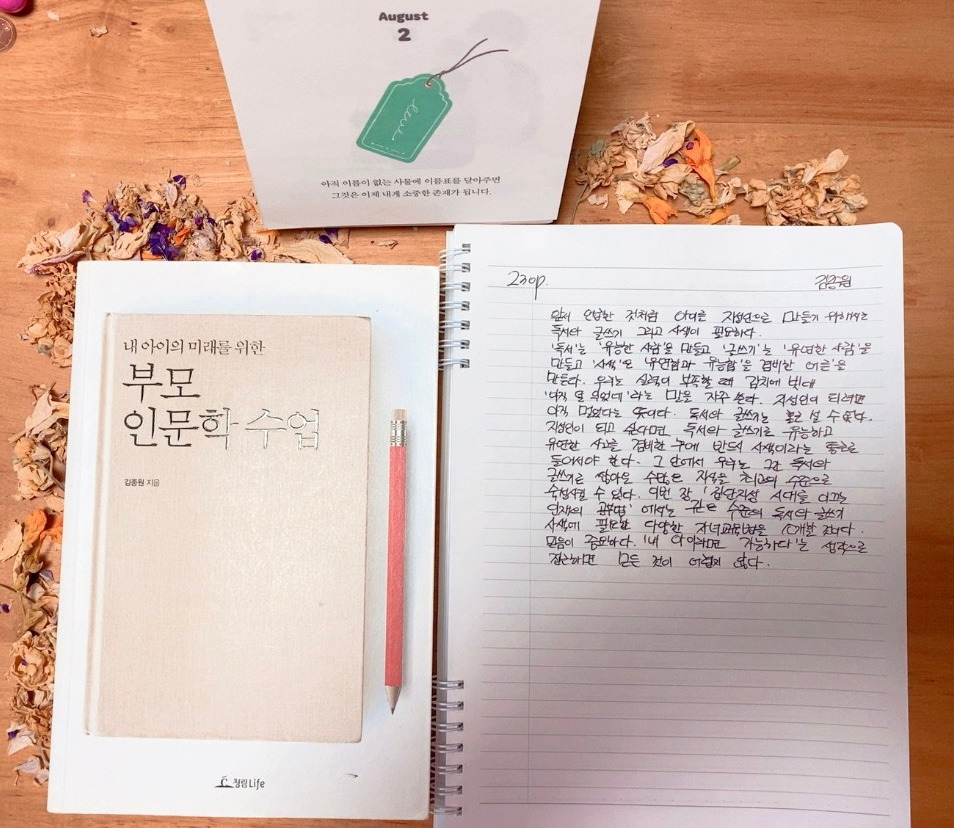 August
2
love
아직 이름이 없는 사물에 이름표를 달아주면
그것은 이제 내게 소중한 존재가 됩니다.
내 아이의 미래를 위한
부모
인문학 수업
김종원 지음
청림Life
230p. 김종원
앞서 언급한 것처럼 아이를 지성인으로 만들기 위해서는
독서와 글쓰기 그리고 사색이 필요하다.
'독서'는 '유능한 사람'을 만들고 '글쓰기'는 '유연한 사람'을
만들고 '사색'은 '유연함과 유능함'을 겸비한 어른'을
만든다. 우리는 실력이 부족할 때 겸손에 빗대
'아직 덜 되었네'라는 말을 자주 쓴다. 지성인이 되려면
아직 멀었다는 뜻이다. 독서와 글쓰기는 홀로 설 수 없다.
지성인이 되고 싶다면, 독서와 글쓰기로 유능하고
유연한 사고를 겸비한 후에 반드시 사색이라는 통로로
들어서야 한다. 그 안에서 우리는 그간 독서와
글쓰기로 쌓아온 수많은 지식을 최고의 수준으로
수집시킬 수 있다. 이번 장 '집단지성 시대를 이끄는
인재의 공부법'에서는 높은 수준의 독서와 글쓰기
사색에 필요한 다양한 자녀교육법을 소개할 것이다.
믿음이 중요하다. '내 아이라면 가능하다'는 생각으로
접근하면 모든 것이 어렵지 않다.